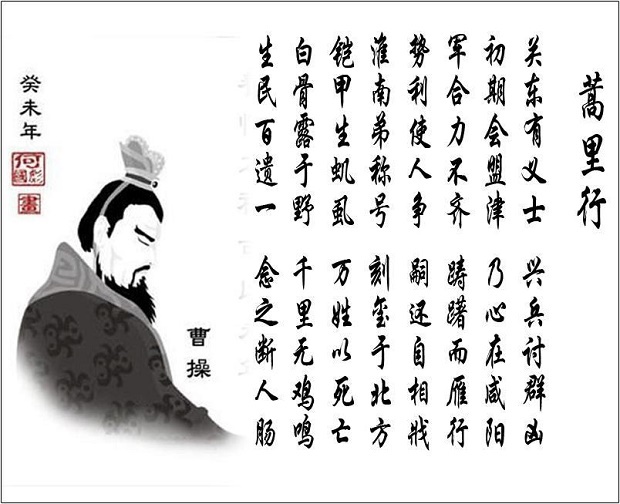 蒿里行
关东有义士 兴兵讨群凶
初期会盟津 乃心在咸阳
军合力不齐 踌躇而雁行
势利使人争 嗣还自相戕
淮南弟称号 刻玺于北方
铠甲生虮虱 万姓以死亡
白骨露于野 千里无鸡鸣
生民百遗一 念之断人肠
曹操
癸未年
畫